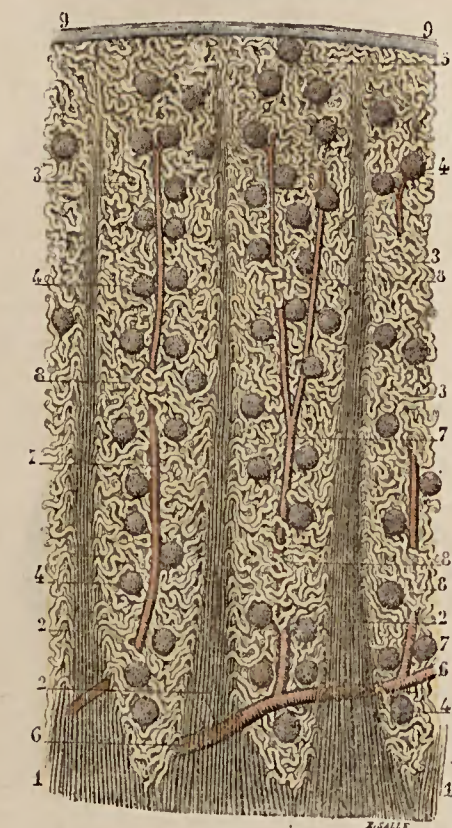 9 9
5
4
3
3
8
4
8
3
7
7
8
4
8
2
2
7
6
2
4
6
1 1
SALLE